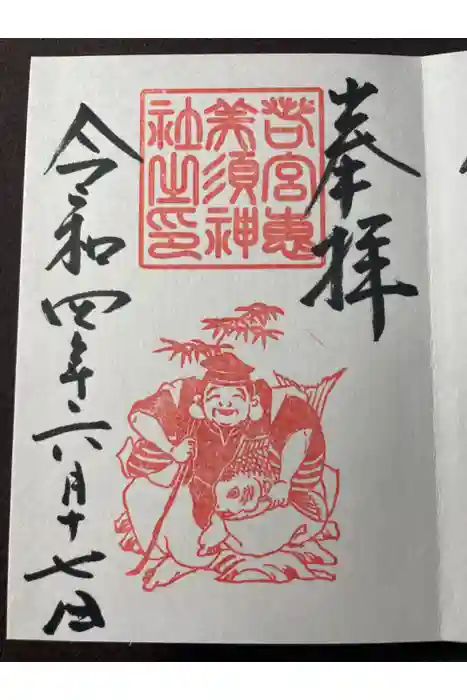 奉拝
若宮恵
美須神
社之印
令和四年六月十七日